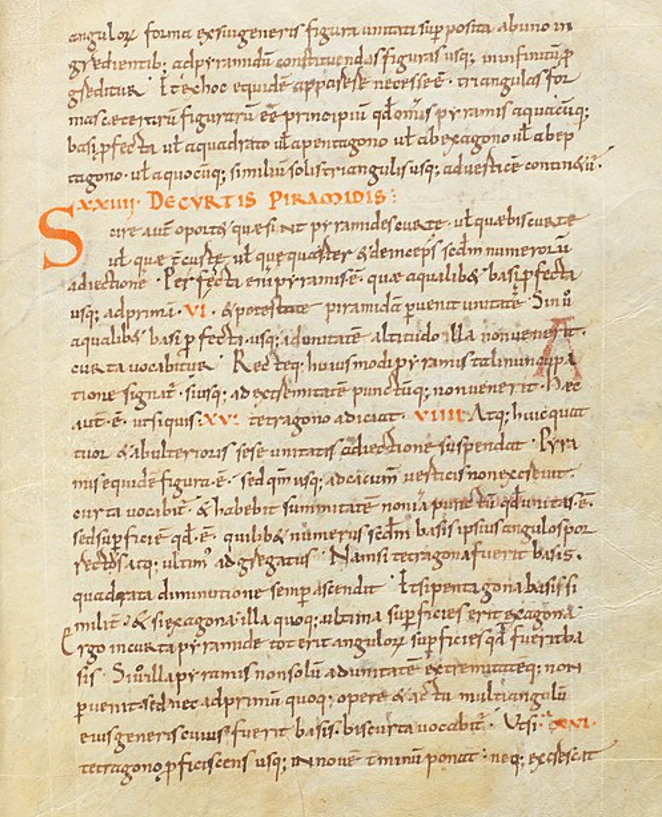 angulorꝝ forma exsuigeneris figura unitati suꝑ posita abuno in
gredientib; adpyramidū constituendas figuras usq; ininfinitū ꝓ
greditur. Et exhoc equidē apparere necesse ē. triangulas for
mas ceterarū figurarū eē principiū qđ omīs pyramis aquacūq;
basi ꝓfecta uł aquadrato uł apentagono uł abexagono uł abep
tagono. uł aquocūq; similiū solis triangulis usq; aduerticē contin&ur.
XXIIII. DECURTIS PIRAMIDIS:
Scire autē oport& quae sint pyramides curte. uł quae biscurte
uł quae t̄ curte uł que quater & deinceps scđm numerorū
adiectionē. Perfecta enī pyramis ē. quae aqualib& basi ꝓfecta
usq; adprimā. VI. & potestate piramidā ꝑuenit unitatē. Sin ū
aqualib& basi ꝓfecta. usq; adunitatē altitudo illa nonuenerit.
curta vocabitur. Recteq; huiusmodi pyramis tali nuncupa
tione signat̄. siusq; adextremitatē punctūq; nonuenerit. Haec
autē. ē. utsiquis. XVI. tetragono adiciat. VIIII. Atq; huic quat
tuor & abulterioris sese unitatis adiectione suspendat. Pyra
mis equidē figura. ē. sed qm̄ usq; adcacumī uerticis non excreuit.
curta vocabit̄. & habebit summitatē non iā punctū qđ unitas. ē.
sed suꝑficiē qđ. ē. quilib& numerus scđm basis ipsius angulos por
rectos atq; ultimꝰ adgregatus. Nam si tetragona fuerit basis.
quadrata diminutione semꝑ ascendit. Et si pentagona basis si
milit̄. & si exagona illa quoq; ultima suꝑficies erit exagona
Ergo incurta pyramide tot erit angulorꝝ suꝑficies qđ fuerit ba
sis. Si ū illa pyramis nonsolū adunitatē extremitatēq; non
ꝑuenit sed nec adprimū quoq; opere & actu multiangulū
eius generis cuius fuerit basis. biscurta vocabit̄. Utsi. a. XVI.
tetragono ꝓficiscens usq; in nouē t̄minū ponat. neq; excrescat